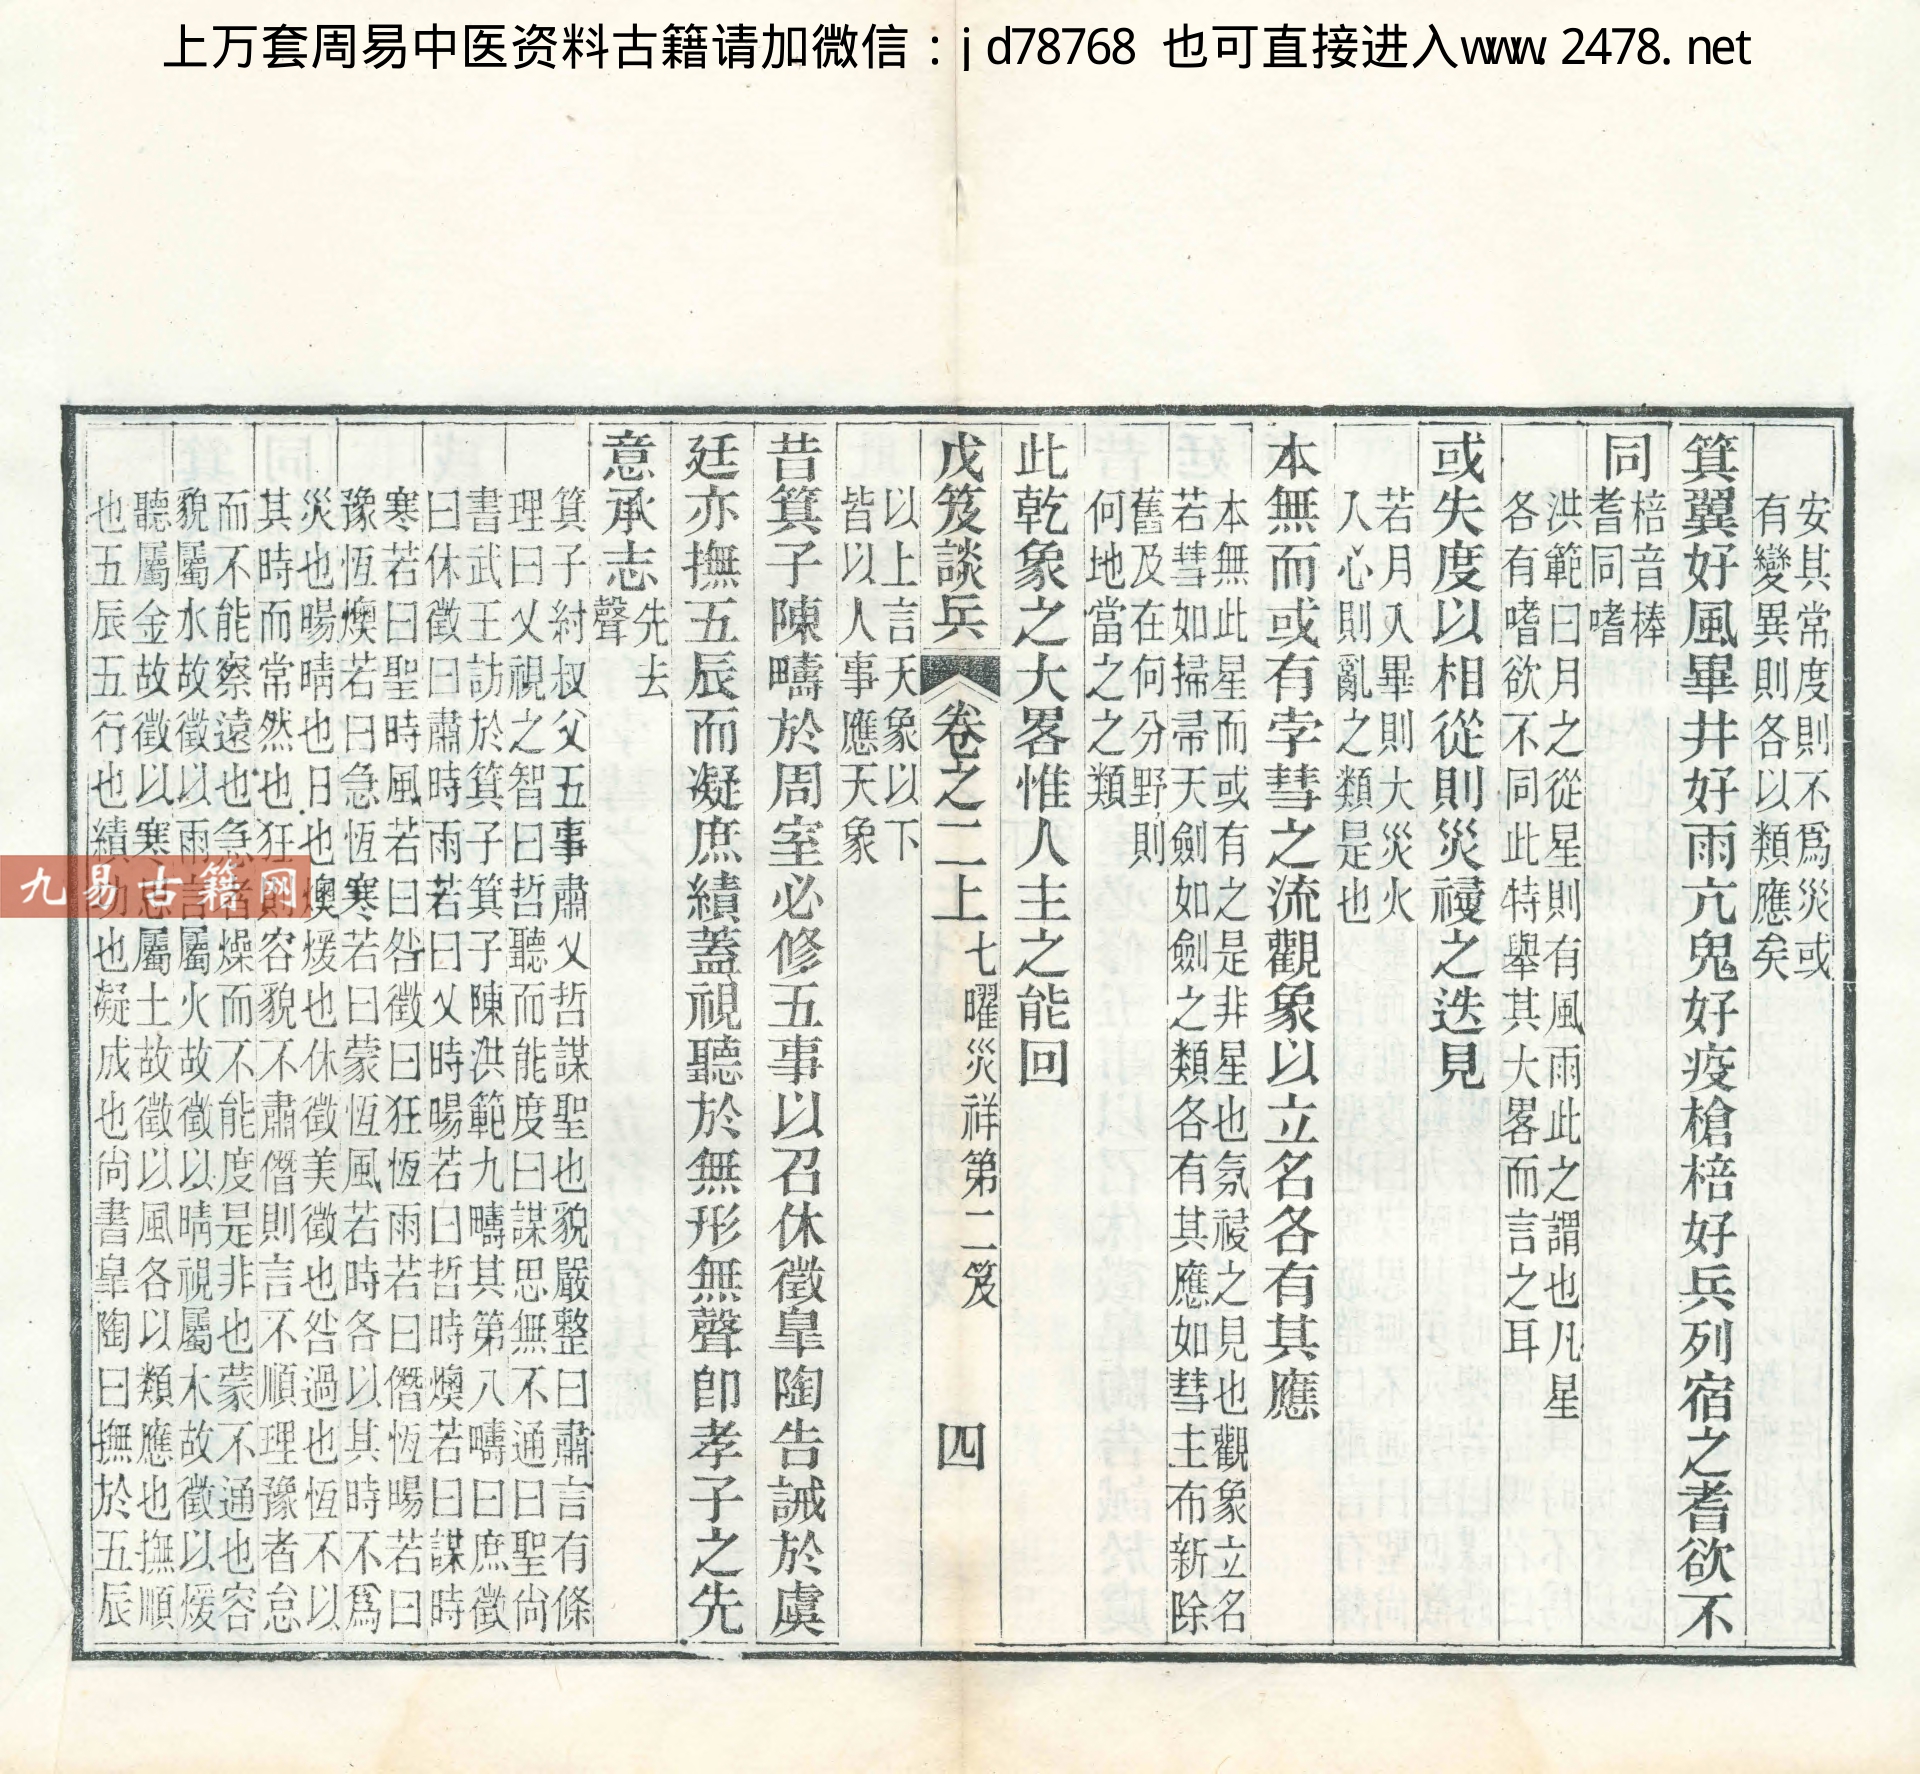 上万套周易中医资料古籍请加微信：jd78768 也可直接进入www.2478.net
安其常度則不爲災或
有變異則各以類應矣
箕翼好風畢井好雨亢鬼好疫槍棓好兵列宿之耆欲不
同
棓音棒
耆同嗜
洪範曰月之從星則有風雨此之謂也凡星
各有嗜欲不同此特舉其大畧而言之耳
或失度以相從則災祲之迭見
若月入畢則大災火
入心則亂之類是也
本無而或有孛彗之流觀象以立名各有其應
本無此星而或有之是非星也氛祲之見也觀象立名
若彗如掃帚天劍如劍之類各有其應如彗主布新除
舊及在何分野則
何地當之之類
此乾象之大畧惟人主之能回
戊笈談兵 卷之二上 七曜災祥第二笈 四
以上言天象以下
皆以人事應天象
昔箕子陳疇於周室必修五事以召休徵臯陶告誡於虞
廷亦撫五辰而凝庶績蓋視聽於無形無聲卽孝子之先
意承志
先去
聲
箕子紂叔父五事肅乂哲謀聖也貌嚴整曰肅言有條
理曰乂視之智曰哲聽而能度曰謀思無不通曰聖尙
書武王訪於箕子箕子陳洪範九疇其第八疇曰庶徵
曰休徵曰肅時雨若曰乂時暘若曰哲時燠若曰謀時
寒若曰聖時風若曰咎徵曰狂恆雨若曰僭恆暘若曰
豫恆燠若曰急恆寒若曰蒙恆風若時各以其時不爲
災也暘晴也日也燠煖也休徵美徵也咎過也恆不以
其時而常然也狂則容貌不肅僭則言不順理豫者怠
而不能察遠也急者燥而不能度是非也蒙不通也容
貌屬水故徵以雨言屬火故徵以晴視屬木故徵以煖
聽屬金故徵以寒思屬土故徵以風各以類應也撫順
也五辰五行也績功也凝成也尙書臯陶曰撫於五辰
九易古籍网